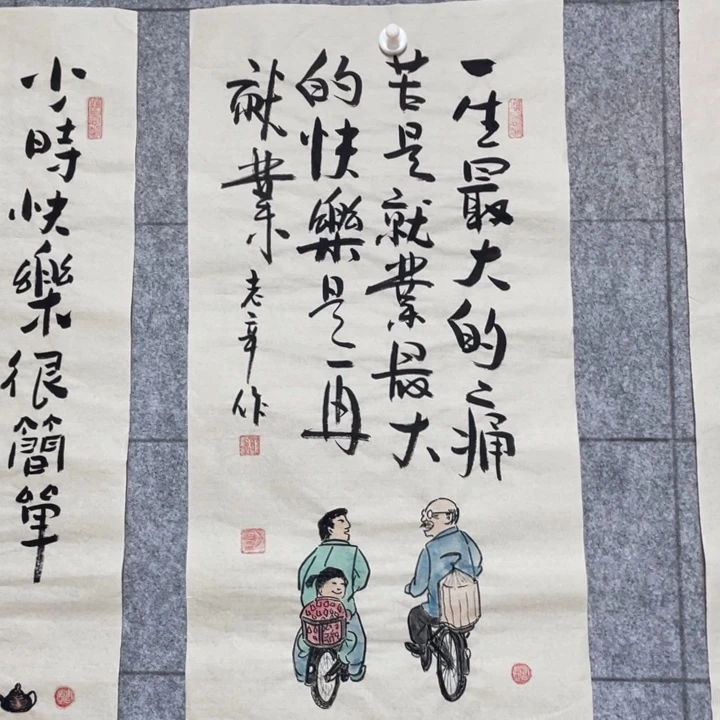 一生最大的痛
苦是就業最大
的快樂是再
就業
老辛作
小時快樂很簡單